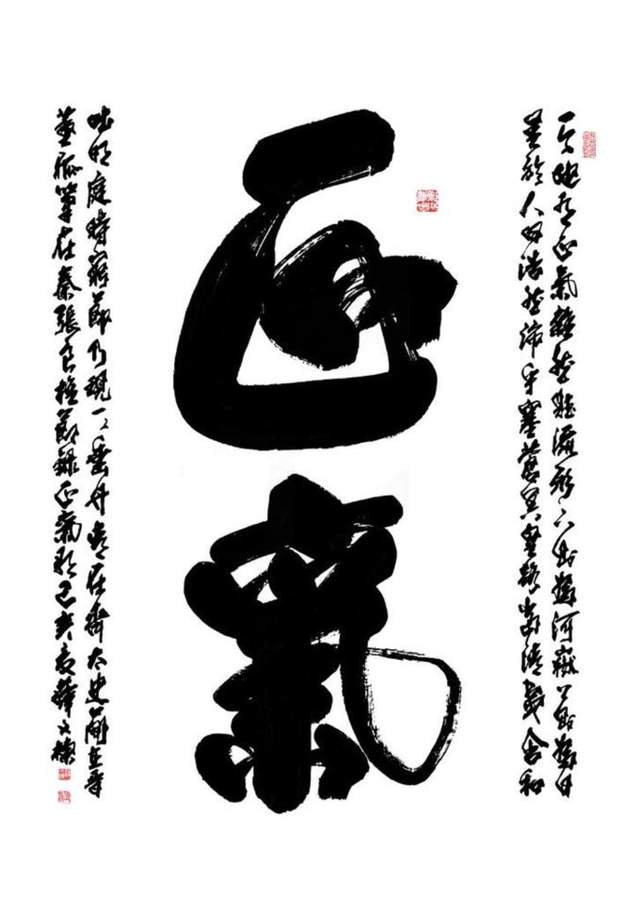 天地有正氣雜然賦流形下則為河嶽上則為日
星於人曰浩然沛乎塞蒼冥皇路當清夷含和
正氣
吐明庭時窮節乃現一一垂丹青在齊太史簡在晉
董狐筆在秦張良椎節錄正氣歌己亥夏